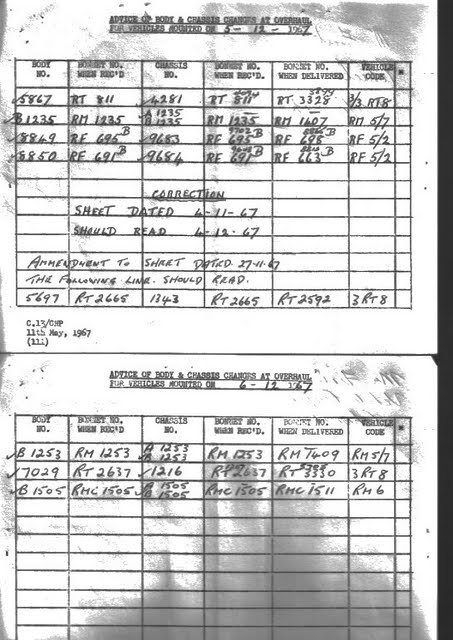 ADVICE OF BODY & CHASSIS CHANGES AT OVERHAUL
FOR VEHICLES MOUNTED ON 5-12-1967
BODY NO. BONNET NO. WHEN REC'D CHASSIS NO. BONNET NO. WHEN REC'D. BONNET NO. WHEN DELIVERED VEHICLE CODE
5867 RT 811 4281 RT 811 RT 3328 3/3 RT8
B1235 RM 1235 A 1235 B 1235 RM 1235 RM 1607 RM 5/7
8849 RF 695B 9683 RF 695B RF 695B RF 5/2
8850 RF 691B 9684 RF 691B RF 663B RF 5/2
CORRECTION
SHEET DATED 4-11-67
SHOULD READ 4-12-67
AMMENDMENT TO SHEET DATED 27-11-67
THE FOLLOWING LINE SHOULD READ.
5697 RT 2665 1343 RT 2665 RT 2592 3 RT 8
C.13/CHP
11th May, 1967
(111)
ADVICE OF BODY & CHASSIS CHANGES AT OVERHAUL
FOR VEHICLES MOUNTED ON 6-12-1967
BODY NO. BONNET NO. WHEN REC'D CHASSIS NO. BONNET NO. WHEN REC'D. BONNET NO. WHEN DELIVERED VEHICLE CODE
B 1253 RM 1253 A 1253 B 1253 RM 1253 RM 1409 RM 5/7
7029 RT 2637 1216 RT 2637 RT 3330 3 RT 8
B 1505 RMC 1505 A 1505 B 1505 RMC 1505 RMC 1511 RM 6